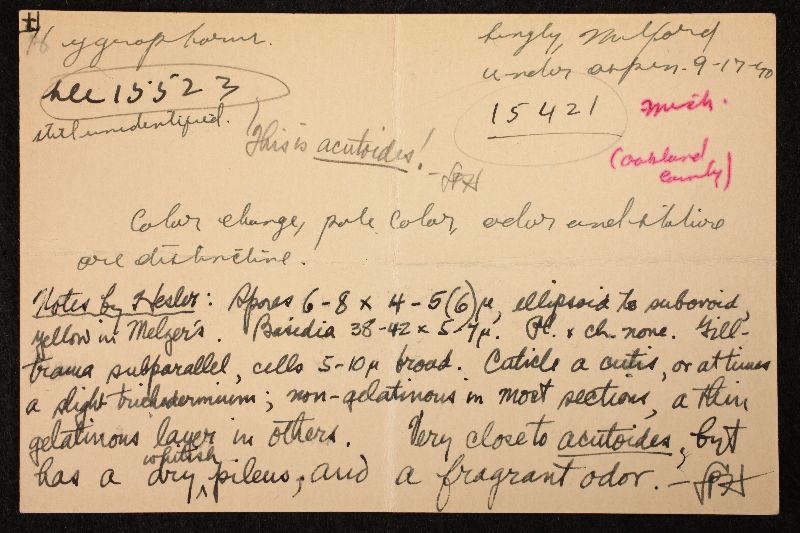 H
Hygrophorus.
Singly, Milford
under aspen. 9-17-40
see 15523
15421
Mich.
still unidentified.
This is acutoides! - LRH
(Oakland
County)
Color change, pale color, odor and stature
are distinctive.
Notes by Hesler: Spores 6-8 x 4-5(6)µ, ellipsoid to subovoid,
yellow in Melzer's. Basidia 38-42 x 5-7µ. Pl. & ch. none. Gill-
trama subparallel, cells 5-10µ broad. Cuticle a cutis, or at times
a slight trichodermium; non-gelatinous in most sections, a thin
gelatinous layer in others. Very close to acutoides, but
has a dry, whitish pileus, and a fragrant odor. - LRH